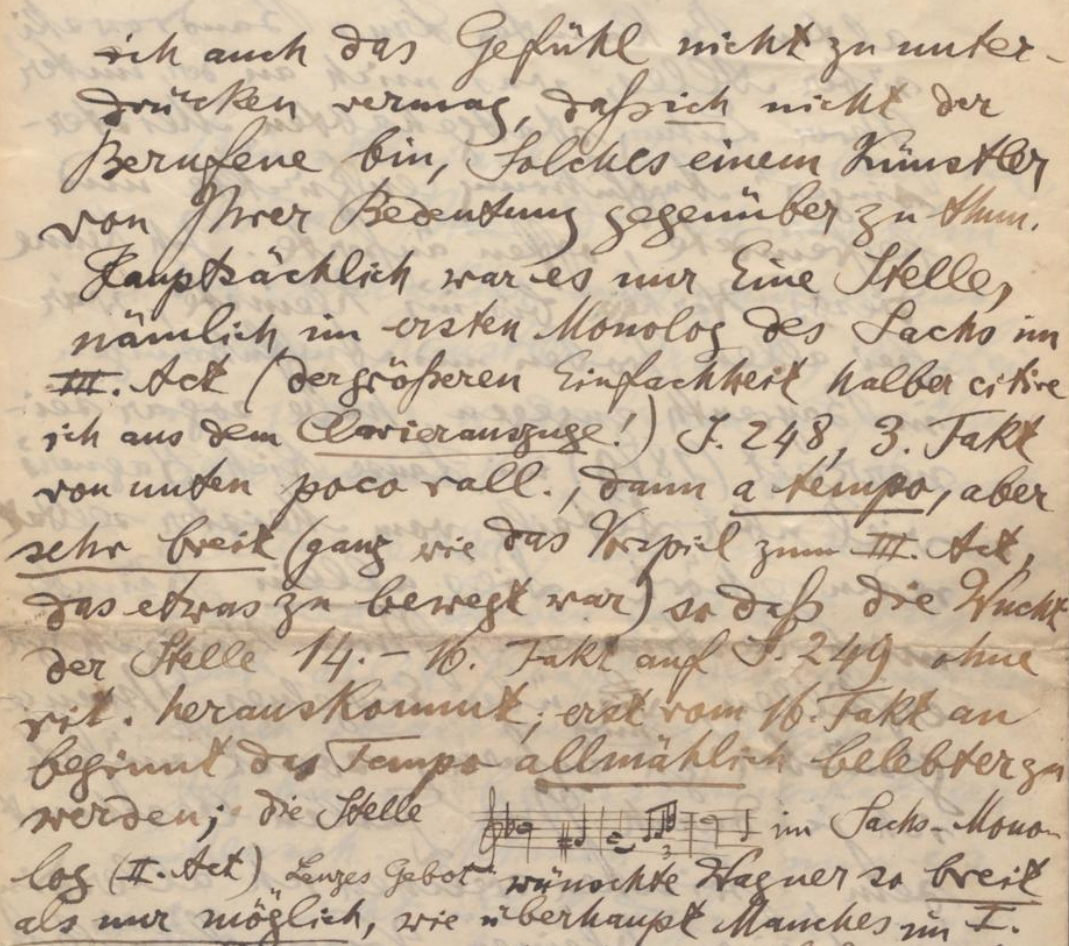 ich auch das Gefühl nicht zu unter-
drücken vermag, daß ich nicht der
Berufene bin, Solches einem Künstler
von Ihrer Bedeutung gegenüber zu thun.
Hauptsächlich war es nur Eine Stelle,
nämlich im ersten Monolog des Sachs im
III. Act (der größeren Einfachheit halber citire
ich aus dem Clavierauszuge!) S. 248, 3. Takt
von unten poco rall., dann a tempo, aber
sehr breit (ganz wie das Vorspiel zum III. Act,
das etwas zu bewegt war) so daß die Wucht
der Stelle 14. - 16. Takt auf S. 249 ohne
rit. herauskommt; erst vom 16. Takt an
beginnt das Tempo allmählich belebter zu
werden; die Stelle im Sachs-Mono-
log (II. Act) „Lenzes Gebot" wünschte Wagner so breit
als nur möglich, wie überhaupt Manches im I.